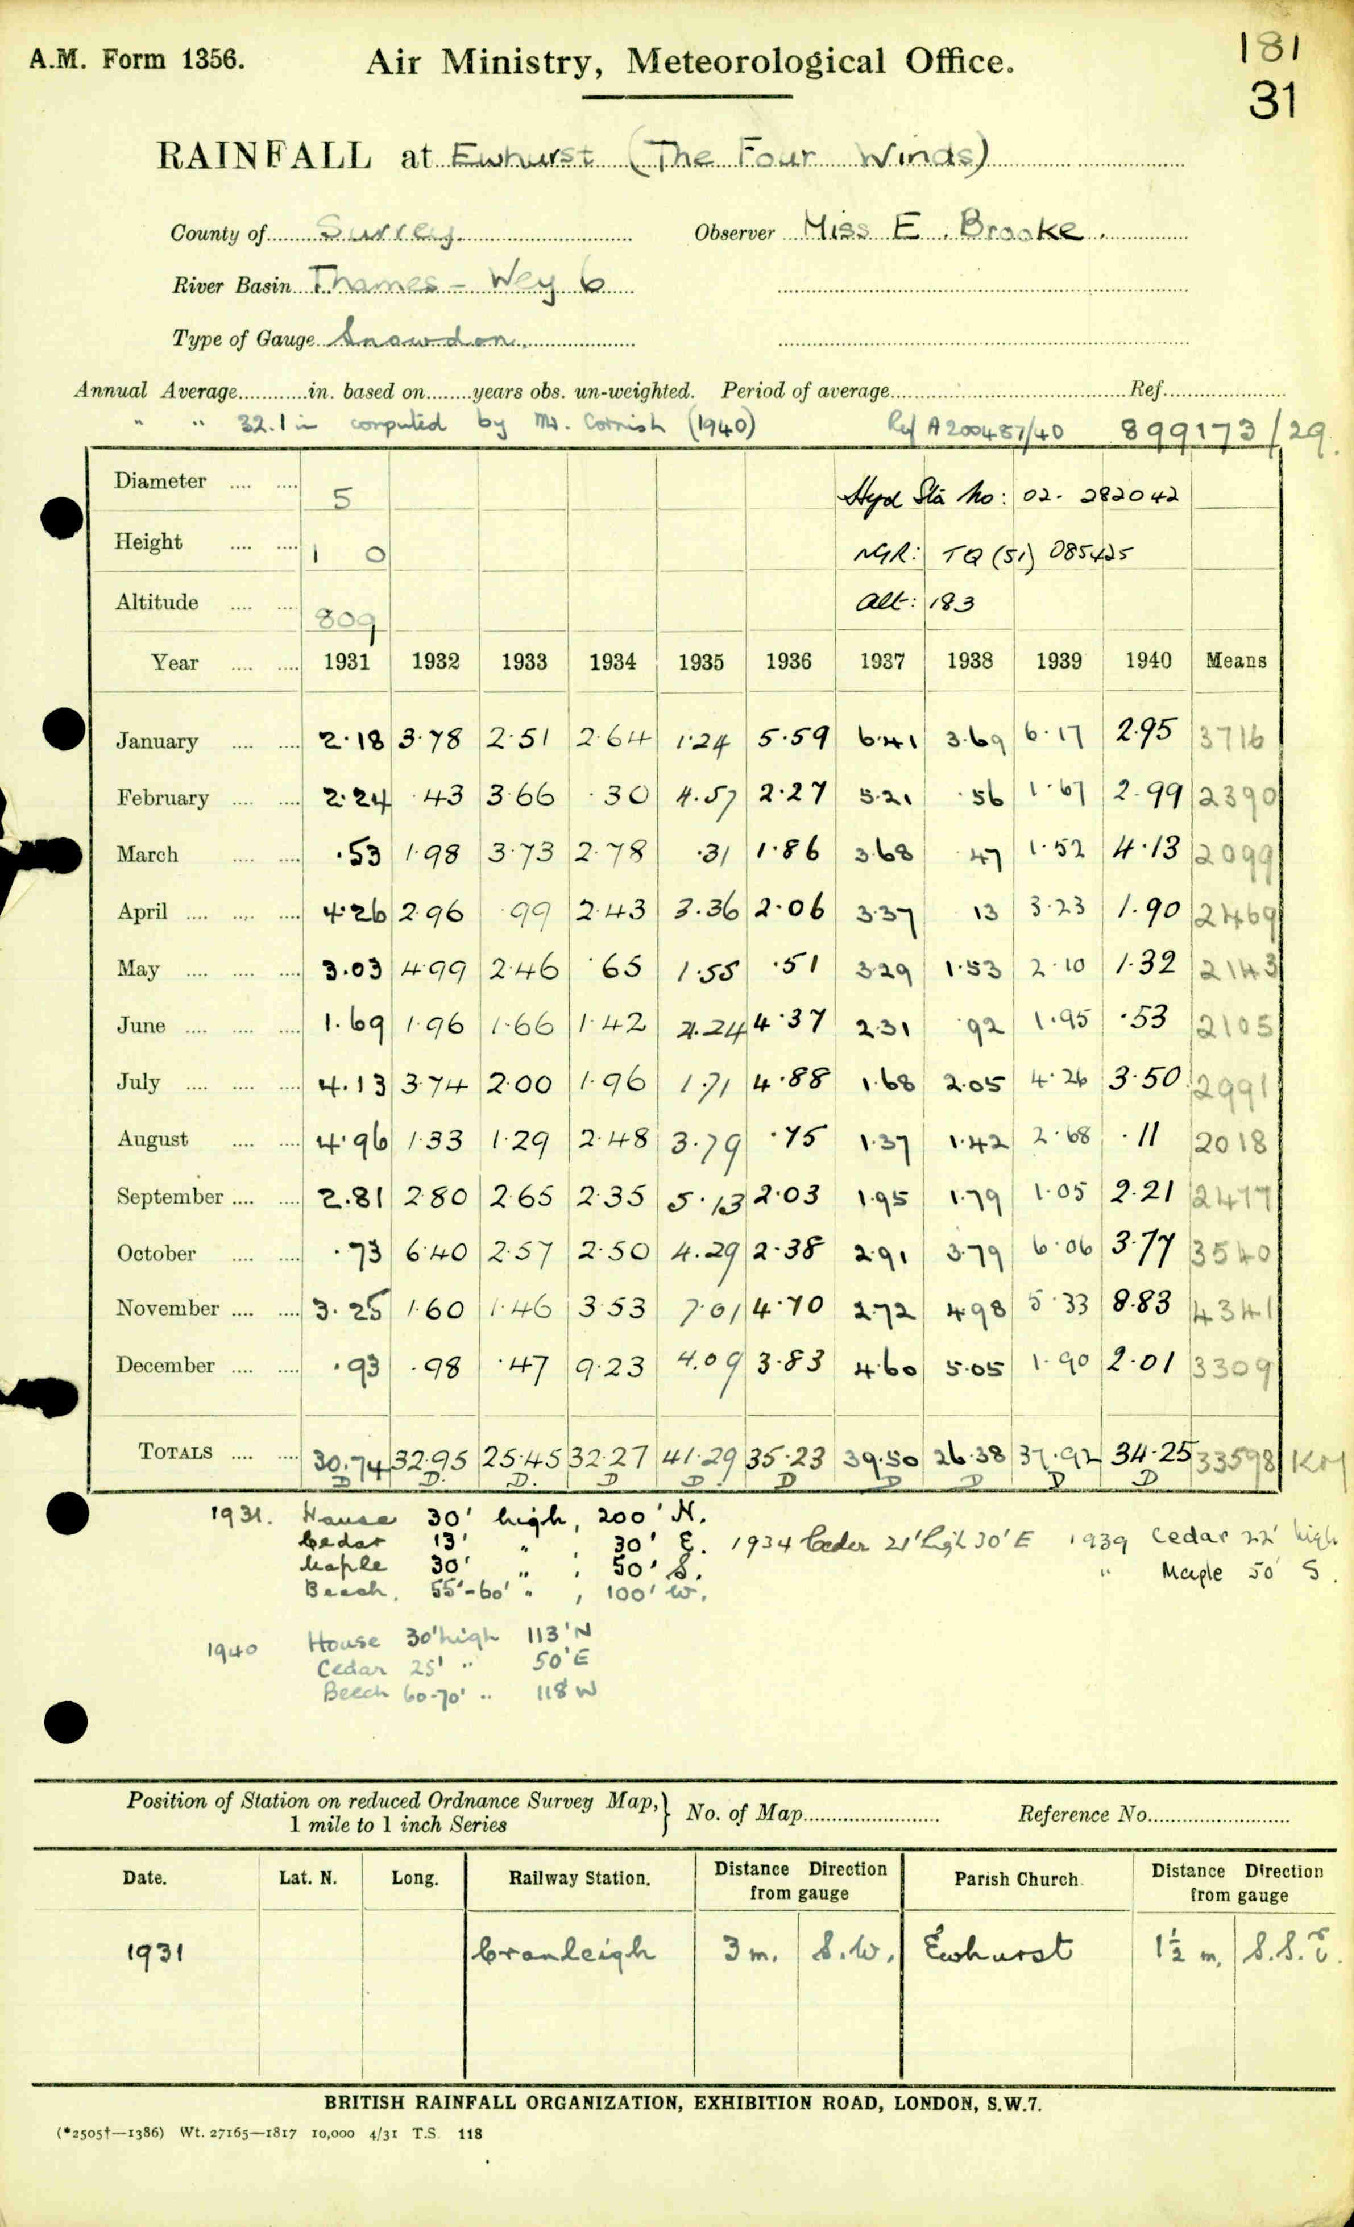 A.M. Form 1356.
Air Ministry, Meteorological Office.
181
31
RAINFALL at Ewhurst (The Four Winds)
County of Surrey. Observer Miss E. Brooke.
River Basin Thames - Wey 6
Type of Gauge Snowdon.
Annual Average in. based on years obs. un-weighted. Period of average Ref.
" " 32.1 in computed by Mr. Cornish (1940) Ref A200487/40 899173/29.
Diameter 5 Hyd Sta No: 02. 282042
Height 1 0 NGR: TQ (51) 085425
Altitude 809 Alt: 183
Year 1931 1932 1933 1934 1935 1936 1937 1938 1939 1940 Means
January 2.18 3.78 2.51 2.64 1.24 5.59 6.41 3.69 6.17 2.95 3716
February 2.24 .43 3.66 .30 4.57 2.27 5.21 .56 1.67 2.99 2390
March .53 1.98 3.73 2.78 .31 1.86 3.68 .47 1.52 4.13 2099
April 4.26 2.96 .99 2.43 3.36 2.06 3.37 13 3.23 1.90 2469
May 3.03 4.99 2.46 .65 1.55 .51 3.29 1.53 2.10 1.32 2143
June 1.69 1.96 1.66 1.42 4.24 4.37 2.31 .92 1.95 .53 2105
July 4.13 3.74 2.00 1.96 1.71 4.88 1.68 2.05 4.26 3.50 2991
August 4.96 1.33 1.29 2.48 3.79 .75 1.37 1.42 2.68 .11 2018
September 2.81 2.80 2.65 2.35 5.13 2.03 1.95 1.79 1.05 2.21 2477
October .73 6.40 2.57 2.50 4.29 2.38 2.91 3.79 6.06 3.77 3540
November 3.25 1.60 1.46 3.53 7.01 4.70 2.72 4.98 5.33 8.83 4341
December .93 .98 .47 9.23 4.09 3.83 4.60 5.05 1.90 2.01 3309
TOTALS 30.74 32.95 25.45 32.27 41.29 35.23 39.50 26.38 37.92 34.25 33598 KM
D D. D. D D. D D D D D
1931. House 30' high, 200' N.
Cedar 13' " , 30' E. 1934 Ceder 21' high 30' E 1939 Cedar 22' high
Maple 30' " , 50' S. " Maple 50' S.
Beech, 55'-60' " , 100' W.
1940 House 30' high 113' N
Cedar 25' " 50' E
Beech 60-70' " 118 W
Position of Station on reduced Ordnance Survey Map, } No. of Map Reference No.
1 mile to 1 inch Series
Date. Lat. N. Long. Railway Station. Distance Direction from gauge Parish Church. Distance Direction from gauge
1931 Cranleigh 3 m. S.W. Ewhurst 1½ m. S.S.E.
BRITISH RAINFALL ORGANIZATION, EXHIBITION ROAD, LONDON, S.W.7.
(*2505†—1386) Wt. 27165—1817 10,000 4/31 T.S. 118